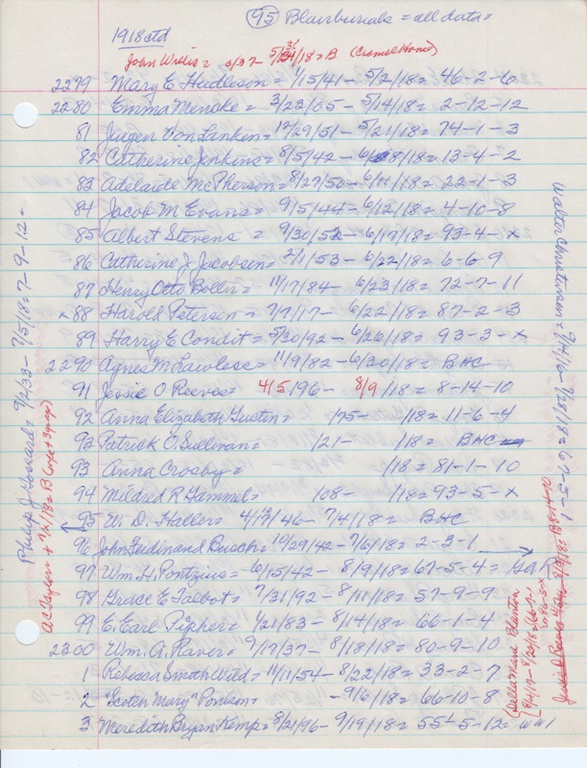 95 Blair burials = all data =
1918 ctd
John Willis = 0/37 - 5/31/18 = B (Cramel Home)
2279 Mary E Hudleson = 1/15/41 - 5/2/18 = 46-2-6
2280 Emma Menake = 3/23/65 - 5/14/18 = 2-12-12
81 Jurgen Von Lanken = 12/29/51 - 5/21/18 = 74-1-3
82 Catherine Jenkins = 8/5/42 - 6/8/18 = 13-4-2
83 Adelaide McPherson = 8/27/50 - 6/11/18 = 22-1-3
84 Jacob M Evans = 9/5/44 - 6/12/18 = 4-10-8
85 Albert Stevens = 9/30/52 - 6/17/18 = 93-4-x
86 Catherine J Jacobsen = 2/1/53 - 6/22/18 = 6-6-9
87 Henry Otto Boller = 11/17/84 - 6/23/18 = 72-7-11
x88 Harold Petersen = 7/7/17 - 6/22/18 = 87-2-3
89 Harry E Condit = 5/30/92 - 6/26/18 = 93-3-x
2290 Agnes M Lawless = 11/9/82 - 6/30/18 = BHC
91 Jessie O Reeves = 4/5/96 - 8/9/18 = 8-14-10
92 Anna Elizabeth Gustin = /75 - /18 = 11-6-4
93 Patrick O.Sullivan = /21 - /18 = BHC
93 Anna Crosby = /18 = 81-1-10
94 Mildred R Gammel = /08 - /18 = 93-5-x
95 W. D. Haller = 4/13/46 - 7/4/18 = BHC
96 John Ferdinand Busch = 10/29/42 - 7/6/18 = 2-3-1
97 Wm. H. Pontzius = 6/15/42 - 8/9/18 = 67-5-4 = GAR
98 Grace E Talbot = 7/31/92 - 8/11/18 = 57-9-9
99 E. Earl Pipher = 1/21/83 - 8/14/18 = 66-1-4
2300 Wm. A. Raver = 9/17/37 - 8/18/18 = 80-9-10
1 Rebecca Smith Wild = 11/11/54 - 8/22/18 = 33-2-7
2 "Scotch Mary" = - 9/6/18 = 66-10-8
3 Meredith Bryan Kemp = 8/21/96 - 9/19/18 = 55½-5-12 = WW1
Philip J Hoscard = 9/2/33 - 7/5/18 = 7-9-12 =
A C Taylor + 7/1/18 = B
Walter Christensen = 9/4/16 - 7/28/18 = 67-5-1
(Della Marie Blanton